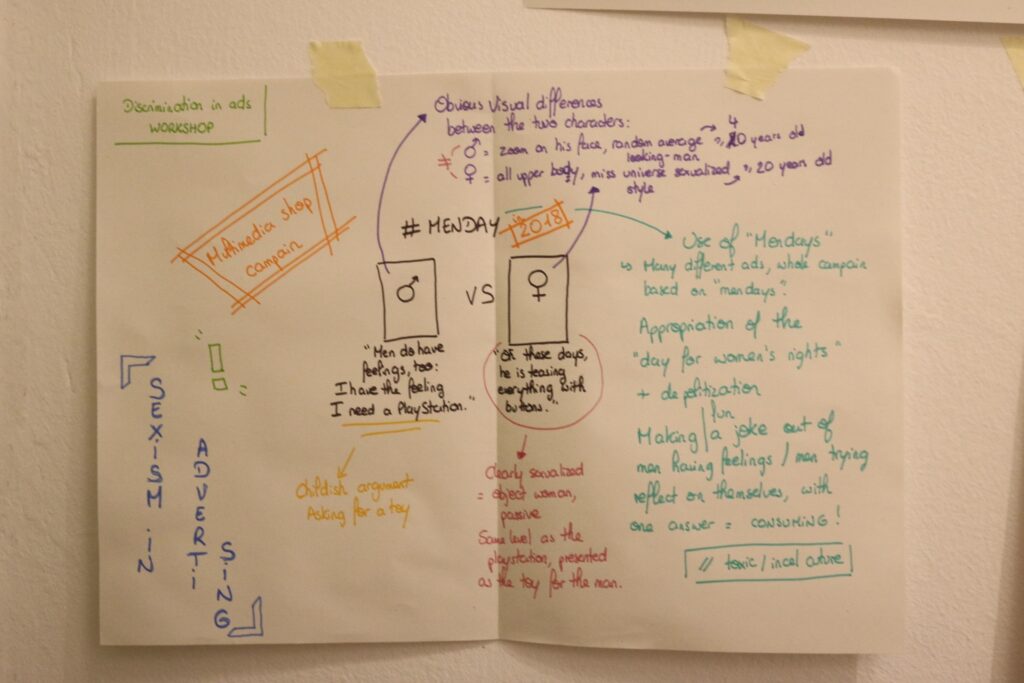 Discrimination in ads
WORKSHOP
Obvious Visual differences
between the two characters:
≠
♂ = zoom on his face, random average looking-man ≈ 40 years old
♀ = all upper body, miss universe sexualized style ≈ 20 year old
Multimedia shop
campain
# MENDAY in 2018
♂ VS ♀
"Men do have
feelings, too:
I have the feeling
I need a PlayStation."
"On these days,
he is teasing
everything with
buttons."
Childish argument
Asking for a toy
Clearly sexualized
= object woman,
passive
Same level as the
playstation, presented
as the toy for the man.
Use of "Mendays"
↳ Many different ads, whole campain
based on "mendays".
Appropriation of the
"day for women's rights"
+ depolitization
Making | a fun joke out of
men having feelings / men trying
reflect on themselves, with
one answer = CONSUMING!
// toxic / incel culture
"!"
SEXISM IN
ADVERTI
SING